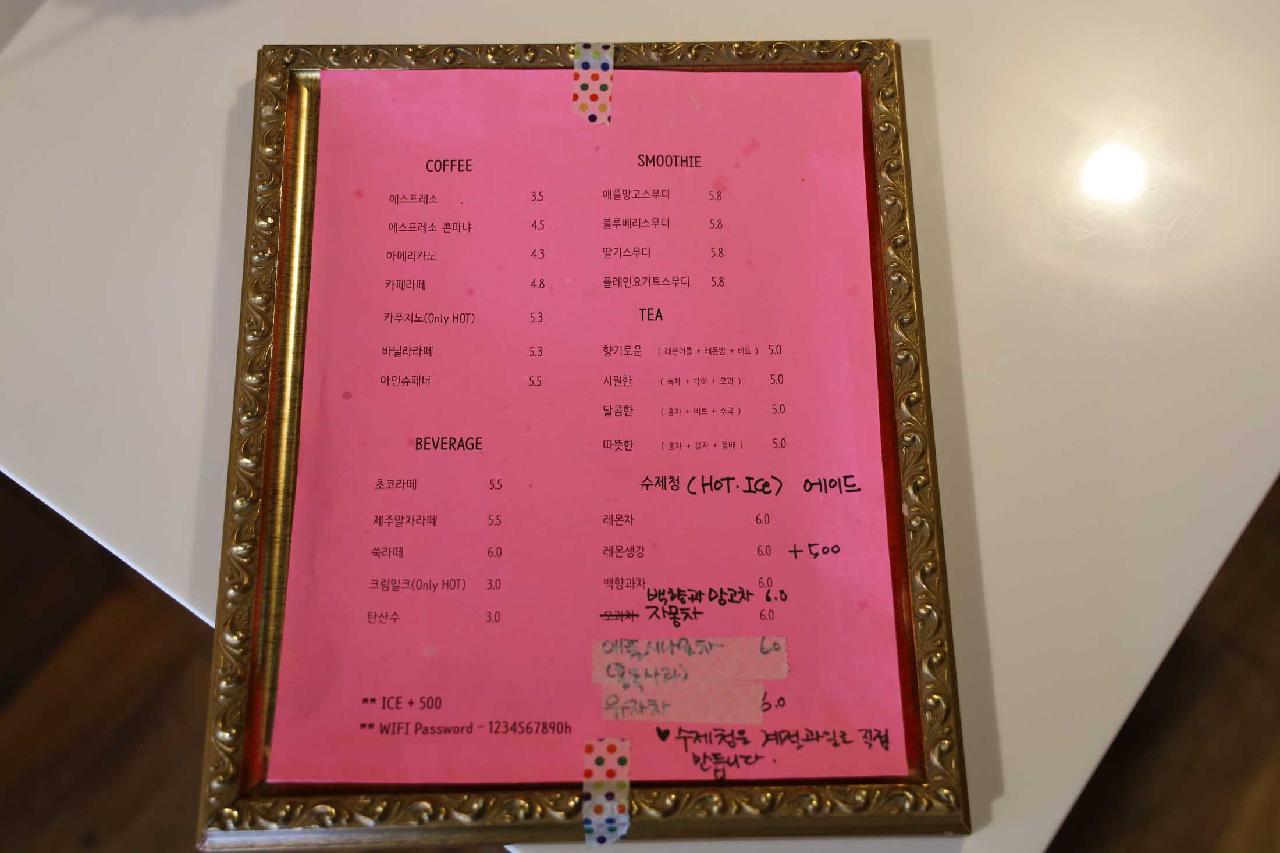 COFFEE
에스프레소 3.5
에스프레소 콘파냐 4.5
아메리카노 4.3
카페라떼 4.8
카푸치노(Only HOT) 5.3
바닐라라떼 5.3
아인슈페너 5.5
BEVERAGE
초코라떼 5.5
제주말차라떼 5.5
쑥라떼 6.0
크림밀크(Only HOT) 3.0
탄산수 3.0
** ICE + 500
** WIFI Password - 1234567890h
SMOOTHIE
애플망고스무디 5.8
블루베리스무디 5.8
딸기스무디 5.8
플레인요거트스무디 5.8
TEA
향기로운 ( 레몬머틀 + 레몬밤 + 비트 ) 5.0
시원한 ( 녹차 + 박하 + 모과 ) 5.0
달콤한 ( 홍차 + 비트 + 수국 ) 5.0
따뜻한 ( 홍차 + 유자 + 돌배 ) 5.0
수제청 (HOT·ICE) 에이드
레몬차 6.0
레몬생강 6.0 +500
백향과차 6.0
백향과 망고차 6.0
모과차 자몽차 6.0
애플시나몬차 6.0
유자차 6.0
♥ 수제청은 계절과일로 직접
만듭니다.